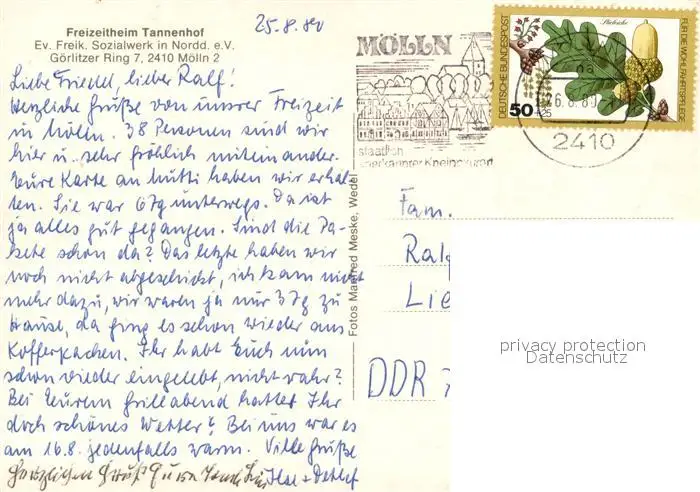 Freizeitheim Tannenhof
Ev. Freik. Sozialwerk in Nordd. e.V.
Görlitzer Ring 7, 2410 Mölln 2
25.8.80
Liebe Friedel, lieber Ralf!
Herzliche Grüße von unsrer Freizeit
in Mölln. 38 Personen sind wir
hier u. sehr fröhlich miteinander.
Eure Karte an Mutti haben wir erhal-
ten. Sie war 6 Tg unterwegs. Da ist
ja alles gut gegangen. Sind die Pa-
kete schon da? Das letzte haben wir
noch nicht abgeschickt, ich kam nicht
mehr dazu, wir waren ja nur 3 Tg zu
Hause, da ging es schon wieder ans
Kofferpacken. Ihr habt Euch nun
schon wieder eingelebt, nicht wahr?
Bei Eurem Grillabend hattet Ihr
doch schönes Wetter? Bei uns war es
am 16.8. jedenfalls warm. Viele Grüße
Ilse + Detlef
Herzlichen Gruß
Fotos Manfred Meske, Wedel
MÖLLN
staatlich
anerkannter Kneippkurort
DEUTSCHE BUNDESPOST
50+25
Stieleiche
FÜR DIE WOHLFAHRTSPFLEGE
26.8.80
2410
Fam.
Ral
Lie
DDR
privacy protection
Datenschutz